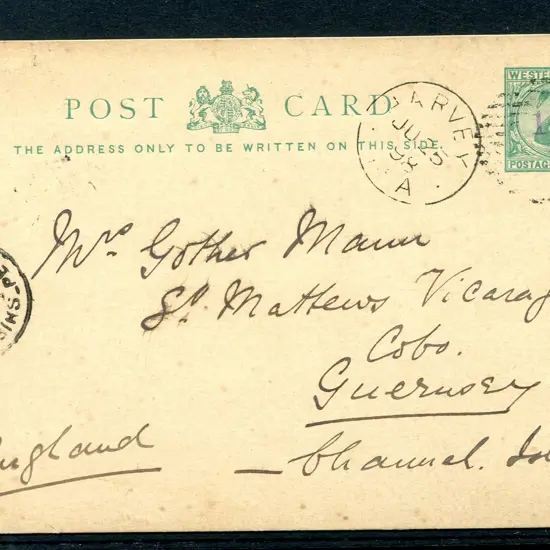 WESTE
POST CARD
THE ADDRESS ONLY TO BE WRITTEN ON THIS SIDE.
POSTAG
HARVEY
JU 25
98
Mrs Gother Mann
St Mathews Vicarag
Cobo.
Guernsey
England
Channel. Isl